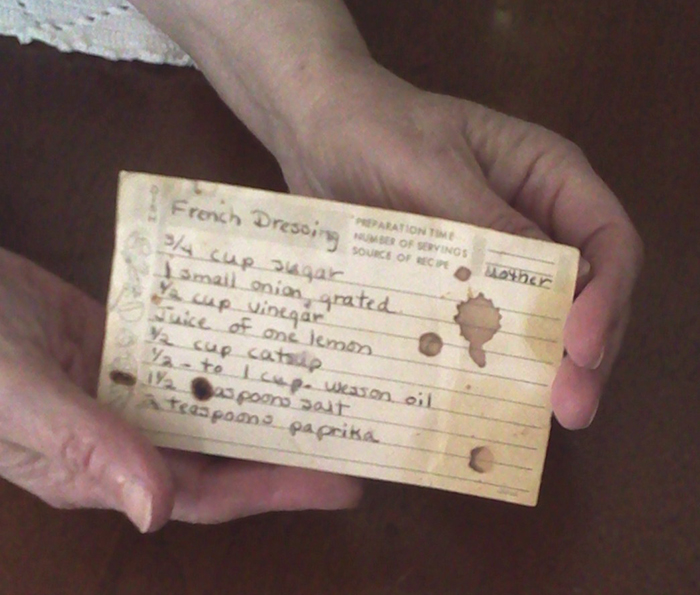 French Dressing
PREPARATION TIME
NUMBER OF SERVINGS
SOURCE OF RECIPE Mother
3/4 cup sugar
1 small onion, grated
1/2 cup vinegar
Juice of one lemon
1/2 cup catsup
1/2 - to 1 cup - wesson oil
1 1/2 easpoons salt
2 teaspoons paprika